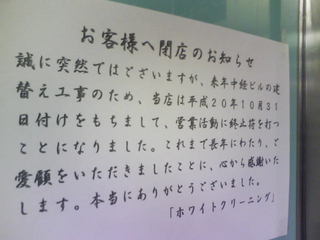 お客様へ閉店のお知らせ
誠に突然ではございますが、来年中経ビルの建
替え工事のため、当店は平成20年10月31
日付けをもちまして、営業活動に終止符を打つ
ことになりました。これまで長年にわたり、ご
愛顧をいただきましたことに、心から感謝いた
します。本当にありがとうございました。
「ホワイトクリーニング」